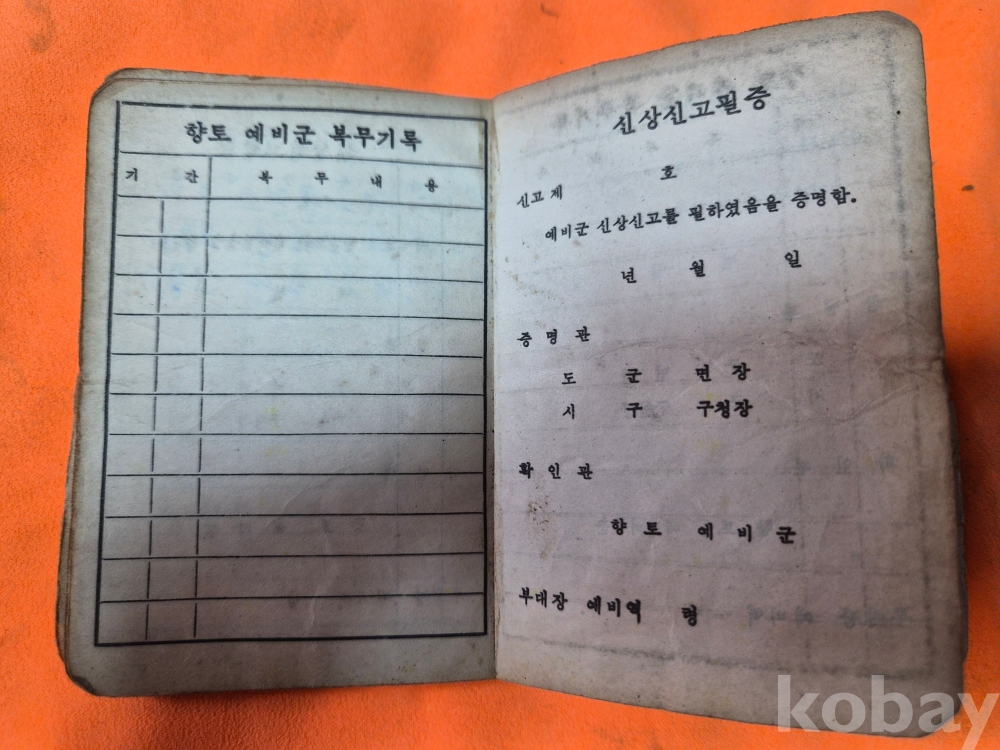 향토 예비군 복무기록
기 간 복 무 내 용
신상신고필증
신고제 호
예비군 신상신고를 필하였음을 증명함.
년 월 일
증 명 관
도 군 면 장
시 구 구청장
확 인 관
향 토 예 비 군
부대장 예비역 령
kobay